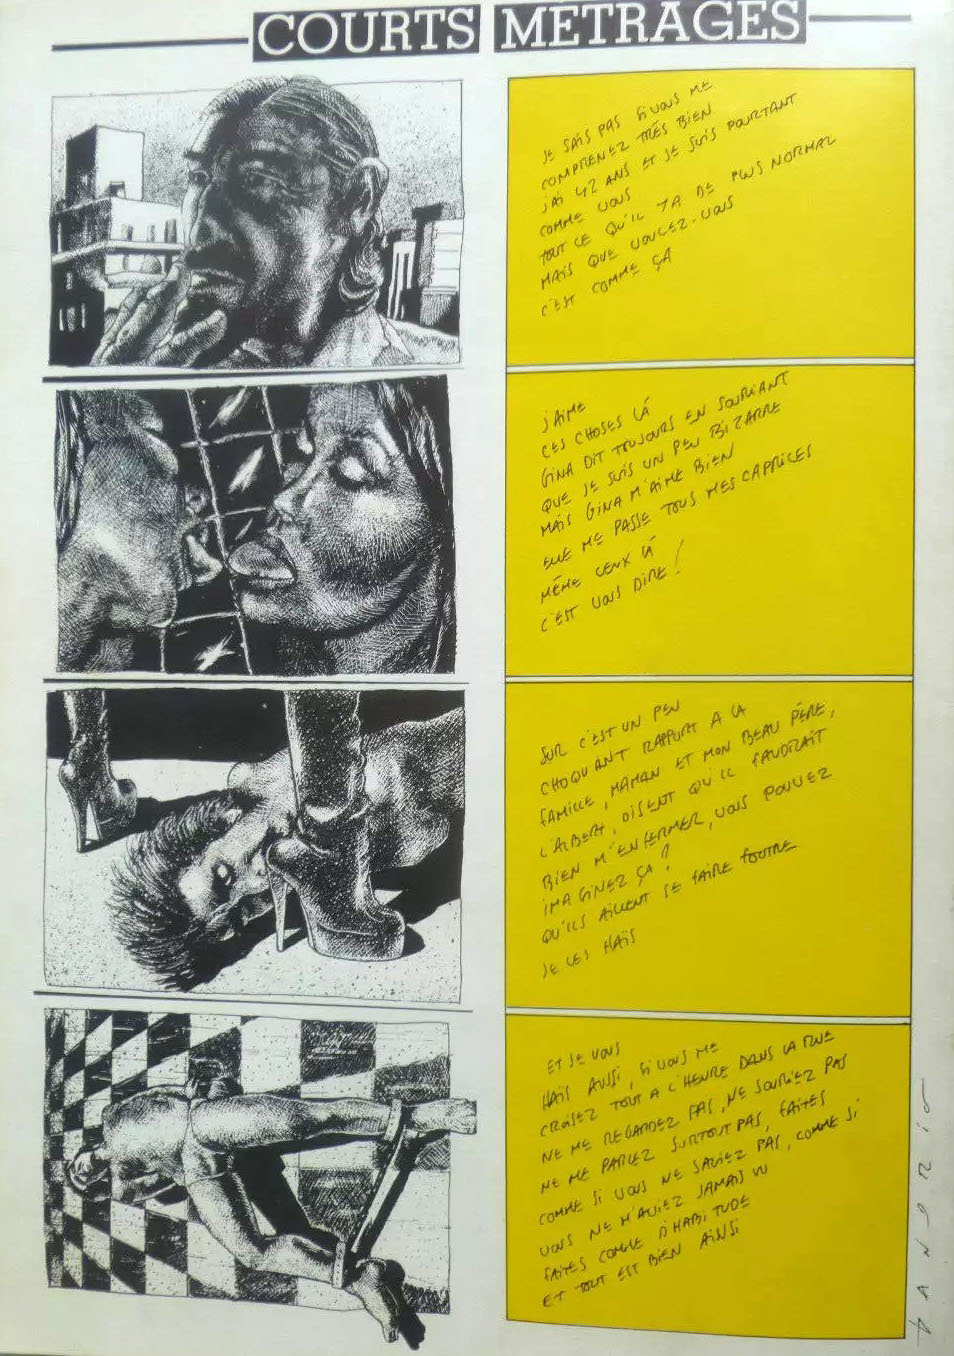 COURTS METRAGES
JE SAIS PAS SI VOUS ME
COMPRENEZ TRÉS BIEN
J'AI 42 ANS ET JE SUIS POURTANT
COMME VOUS
TOUT CE QU'IL YA DE PLUS NORMAL
MAIS QUE VOULEZ-VOUS
C'EST COMME ÇA
J'AIME
CES CHOSES LÀ
GINA DIT TOUJOURS EN SOURIANT
QUE JE SUIS UN PEU BIZARRE
MAIS GINA M'AIME BIEN
ELLE ME PASSE TOUS MES CAPRICES
MÊME CEUX LÀ
C'EST VOUS DIRE !
SUR C'EST UN PEU
CHOQUANT RAPPORT A LA
FAMILLE, MAMAN ET MON BEAU PÉRE,
L'ALBERT, DISENT QU'IL FAUDRAIT
BIEN M'ENFERMER, VOUS POUVEZ
IMAGINEZ ÇA ?
QU'ILS AILLENT SE FAIRE FOUTRE
JE LES HAÏS
ET JE VOUS
HAÏS AUSSI, SI VOUS ME
CROISEZ TOUT A L'HEURE DANS LA RUE
NE ME REGARDEZ PAS, NE SOURIEZ PAS
NE ME PARLEZ SURTOUT PAS, FAITES
COMME SI VOUS NE SAVIEZ PAS, COMME SI
VOUS NE M'AVIEZ JAMAIS VU
FAITES COMME D'HABITUDE
ET TOUT EST BIEN AINSI